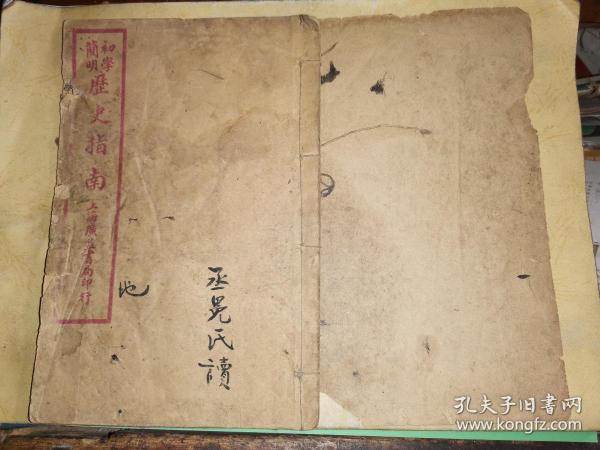 初學
簡明
歷史指南
上海廣益書局印行
地
丞晃氏讀
孔夫子旧書网
www.kongfz.com